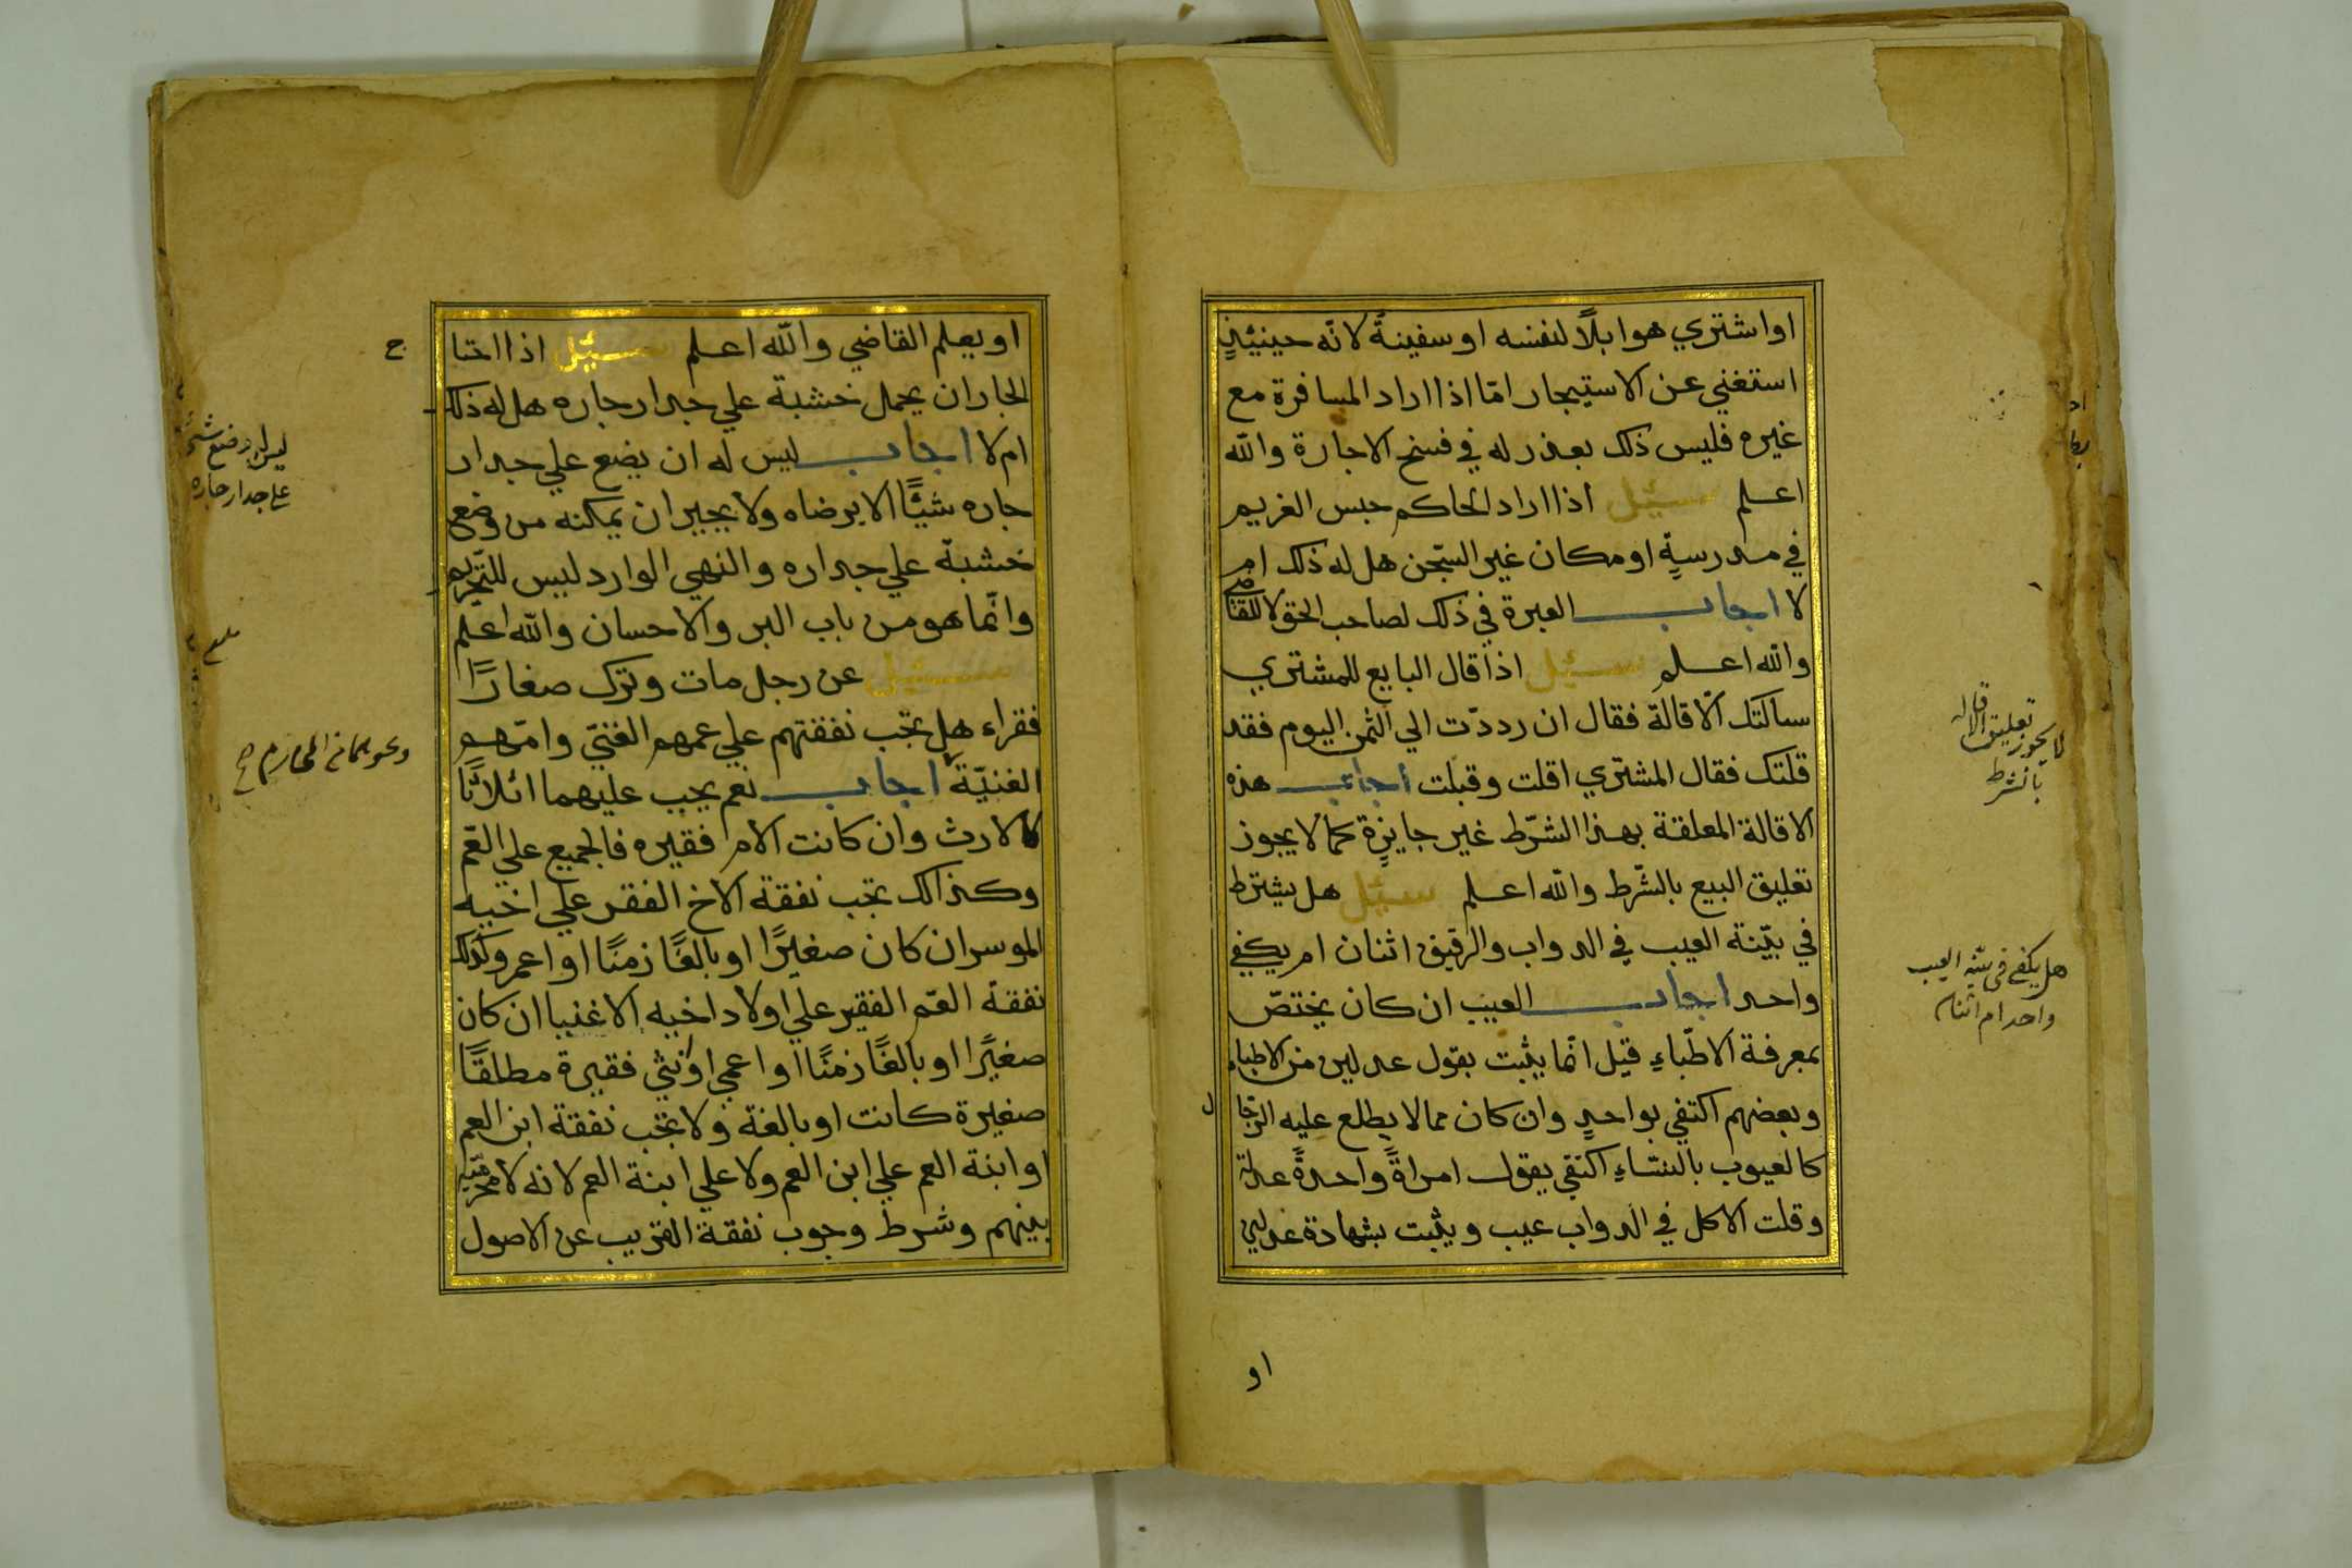 او اشتري هو ابلًا لنفسه او سفينةً لانّه حينيئذٍ
استغني عن الاستيجار امّا اذا اراد المسافرة مع
غيره فليس ذلك بعذر له في فسخ الاجارة والله
اعلم سئيل اذا اراد الحاكم حبس الغريم
في مدرسةٍ او مكان غير السّجن هل له ذلك ام
لا اجاب العبرة في ذلك لصاحب الحق لا للقاضي
والله اعلم سئيل اذا قال البايع للمشتري
سالتك الاقالة فقال ان رددّت الي الثمن اليوم فقد
قلتك فقال المشتري اقلت وقبلت اجاب هذه
الاقالة المعلقة بهذا الشّرط غير جايزةٍ كما لا يجوز
تعليق البيع بالشّرط والله اعلم سئيل هل يشترط
في بيّنة العيب في الدواب والرقيق اثنان ام يكفي
واحد اجاب العيب ان كان يختصّ
بمعرفة الاطّباءِ قيل انّما يثبت بقول عدلين من الاطباء
وبعضهم اكتفي بواحدٍ وان كان مما لا يطلع عليه الرّجال
كالعيوب بالنسّاءِ اكتفي بقول امراةً واحدةً عدلة
وقلت الاكل في الدواب عيب ويثبت بشهادة عدلين
او
لا يجوز تعليق الاقالة
بالشرط
هل يكفي في بينة العيب
واحد ام اثنان
او يعلم القاضي والله اعلم سئيل اذا احتا
ج
الجار ان يحمل خشبة علي جدار جاره هل له ذلك
ام لا اجاب ليس له ان يضع علي جدار
جاره شيئًا الا برضاه ولا يجبر ان يمكنه من وضع
خشبة علي جداره والنهي الوارد ليس للتّحريم
وانّما هو من باب البر والاحسان والله اعلم
سئيل عن رجل مات وترك صغارًا
فقراء هل تجب نفقتهم علي عمهم الغنيّ وامّهم
الغنيّة اجاب نعم يجب عليهما اثلاثًا
كالارث وان كانت الام فقيره فالجميع علي العّم
وكذالك تجب نفقة الاخ الفقر علي اخيه
الموسر ان كان صغيرًا او بالغًا زمنًا او اعمي وكذلك
نفقة العّم الفقير علي اولاد اخيه الاغنيا ان كان
صغيًرا او بالغًا زمنًا او اعمي او نثي فقيرة مطلقًا
صغيرة كانت او بالغة ولا تجب نفقة ابن العم
او ابنة العم علي ابن العم ولا علي ابنة العم لانه لا محرميّة
بينهم وشرط وجوب نفقة القريب عن الاصول
ليس له وضع شئ
على جدار جاره